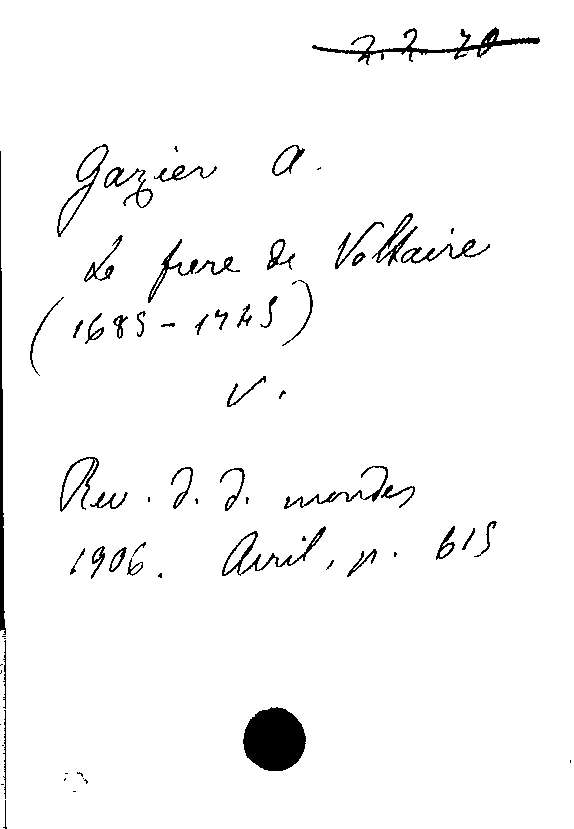 2.2.20
Gazier A.
Le frere de Voltaire
(1685-1745)
V.
Rev. d. d. mondes
1906. Avril, p. 615